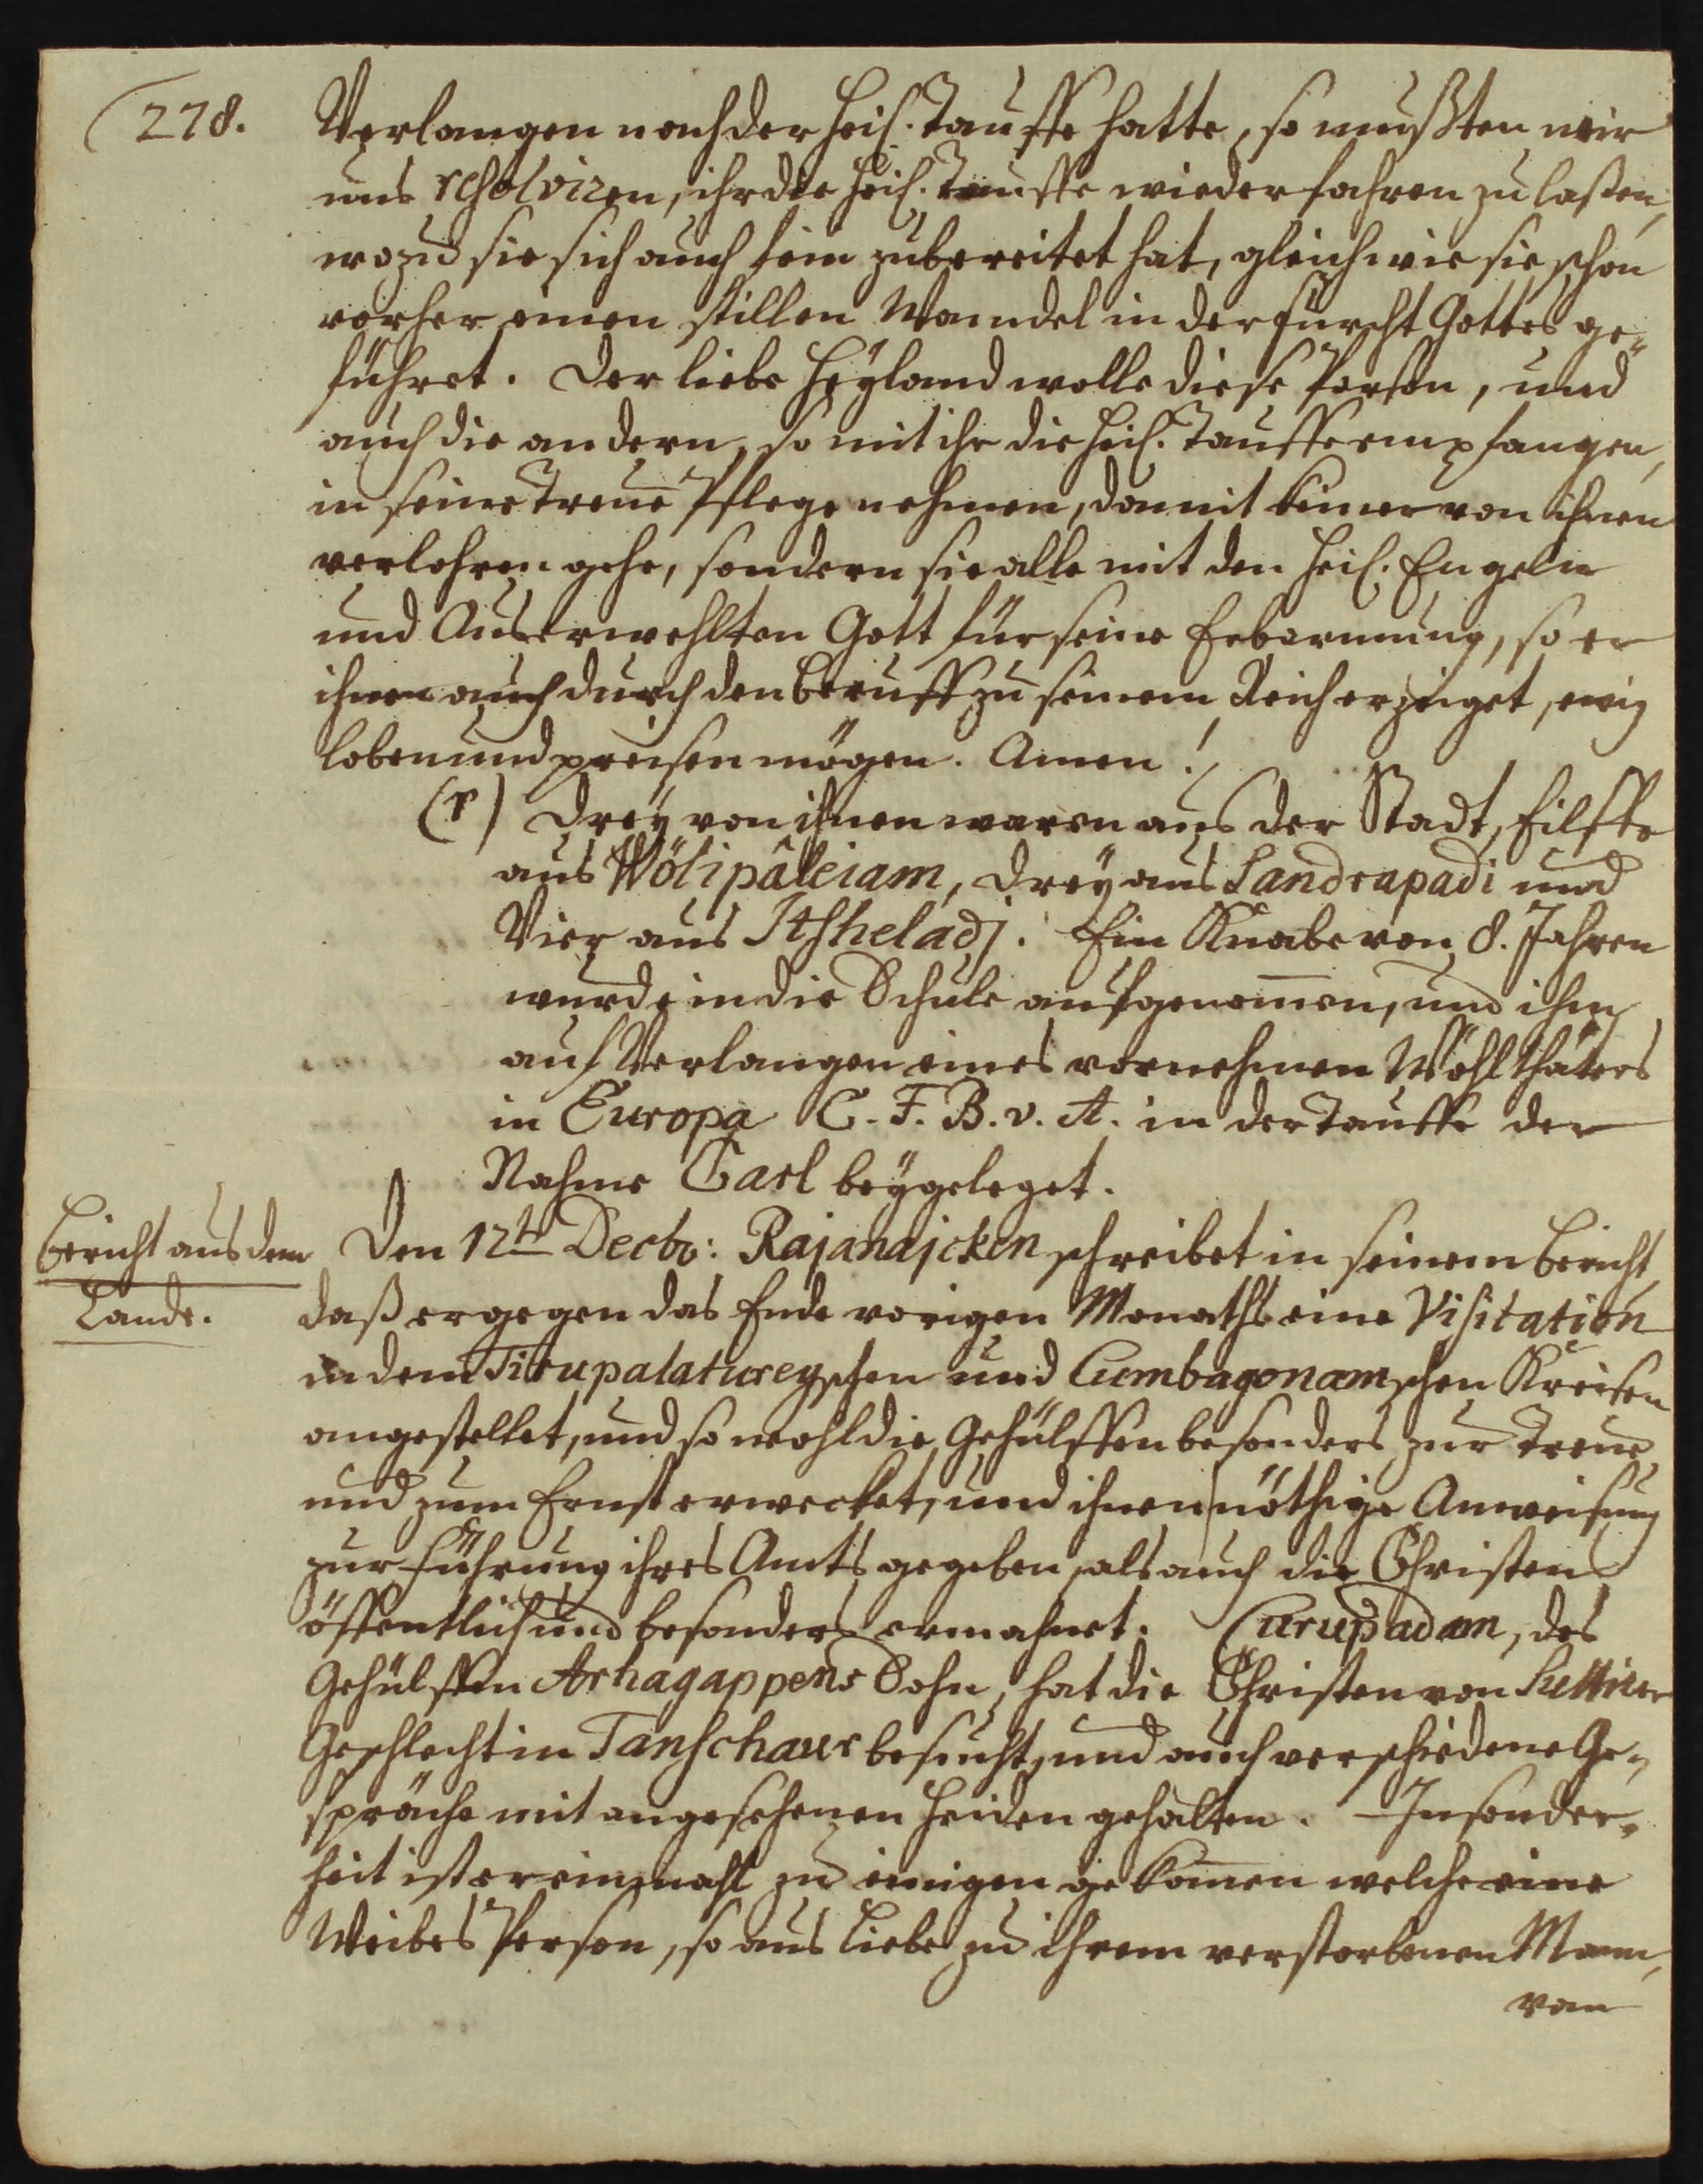 (278.
Verlangen nach der heil. Tauffe hatte, so mußten wir
uns resolviren, ihr die heil. Tauffe wiederfahren zu laßen,
wozu sie sich auch fein zubereitet hat, gleichwie sie schon
vorher einen stillen Wandel in der Furcht Gottes ge-
führet. Der liebe Heyland wolle diese Person, und
auch die andern, so mit ihr die heil. Tauffe empfangen,
in seine treue Pflege nehmen, damit keiner von ihnen
verlohren gehe, sondern sie alle mit den heil. Engeln
und Auserwehlten Gott für seine Erbarmung, so er
ihnen auch durch den Beruff zu seinem Reich erzeiget, ewig
loben und preisen mögen. Amen!
(r) Drey von ihnen waren aus der Stadt, Eilffe
aus Wölipâleiam, Drey aus Sandrapadi und
Vier aus Itsheladi. Ein Knabe von 8. Jahren
wurde in die Schule aufgenom̄en, und ihm
auf Verlangen eines vornehmen Wohlthäters
in Europa C. F. B. v. A. in der Tauffe der
Nahme Carl beygeleget.
Bericht aus dem
Lande.
Den 12t Decbr: Rajanaicken schreibet in seinem Bericht,
daß er gegen das Ende vorigen Monaths eine Visitation
in dem Tirupalatureyschen und Cumbagonamschen Kreisen
angestellet, und so wohl die Gehülffen besonders zur Treue
und zum Ernst erwecket, und ihnen nöthige Anweisung
zur Führung ihres Amts gegeben, als auch die Christen
öffentlich und besonders ermahnet. Curupadam, des
Gehülffen Arhagappens Sohn, hat die Christen von Suttirer
Geschlecht in Tanschaur besucht, und auch verschiedene Ge-
spräche mit angesehenen Heiden gehalten. Insonder-
heit ist er einmahl zu einigen gekom̄en welche eine
Weibes Person, so aus Liebe zu ihrem verstorbenen Mann,
von